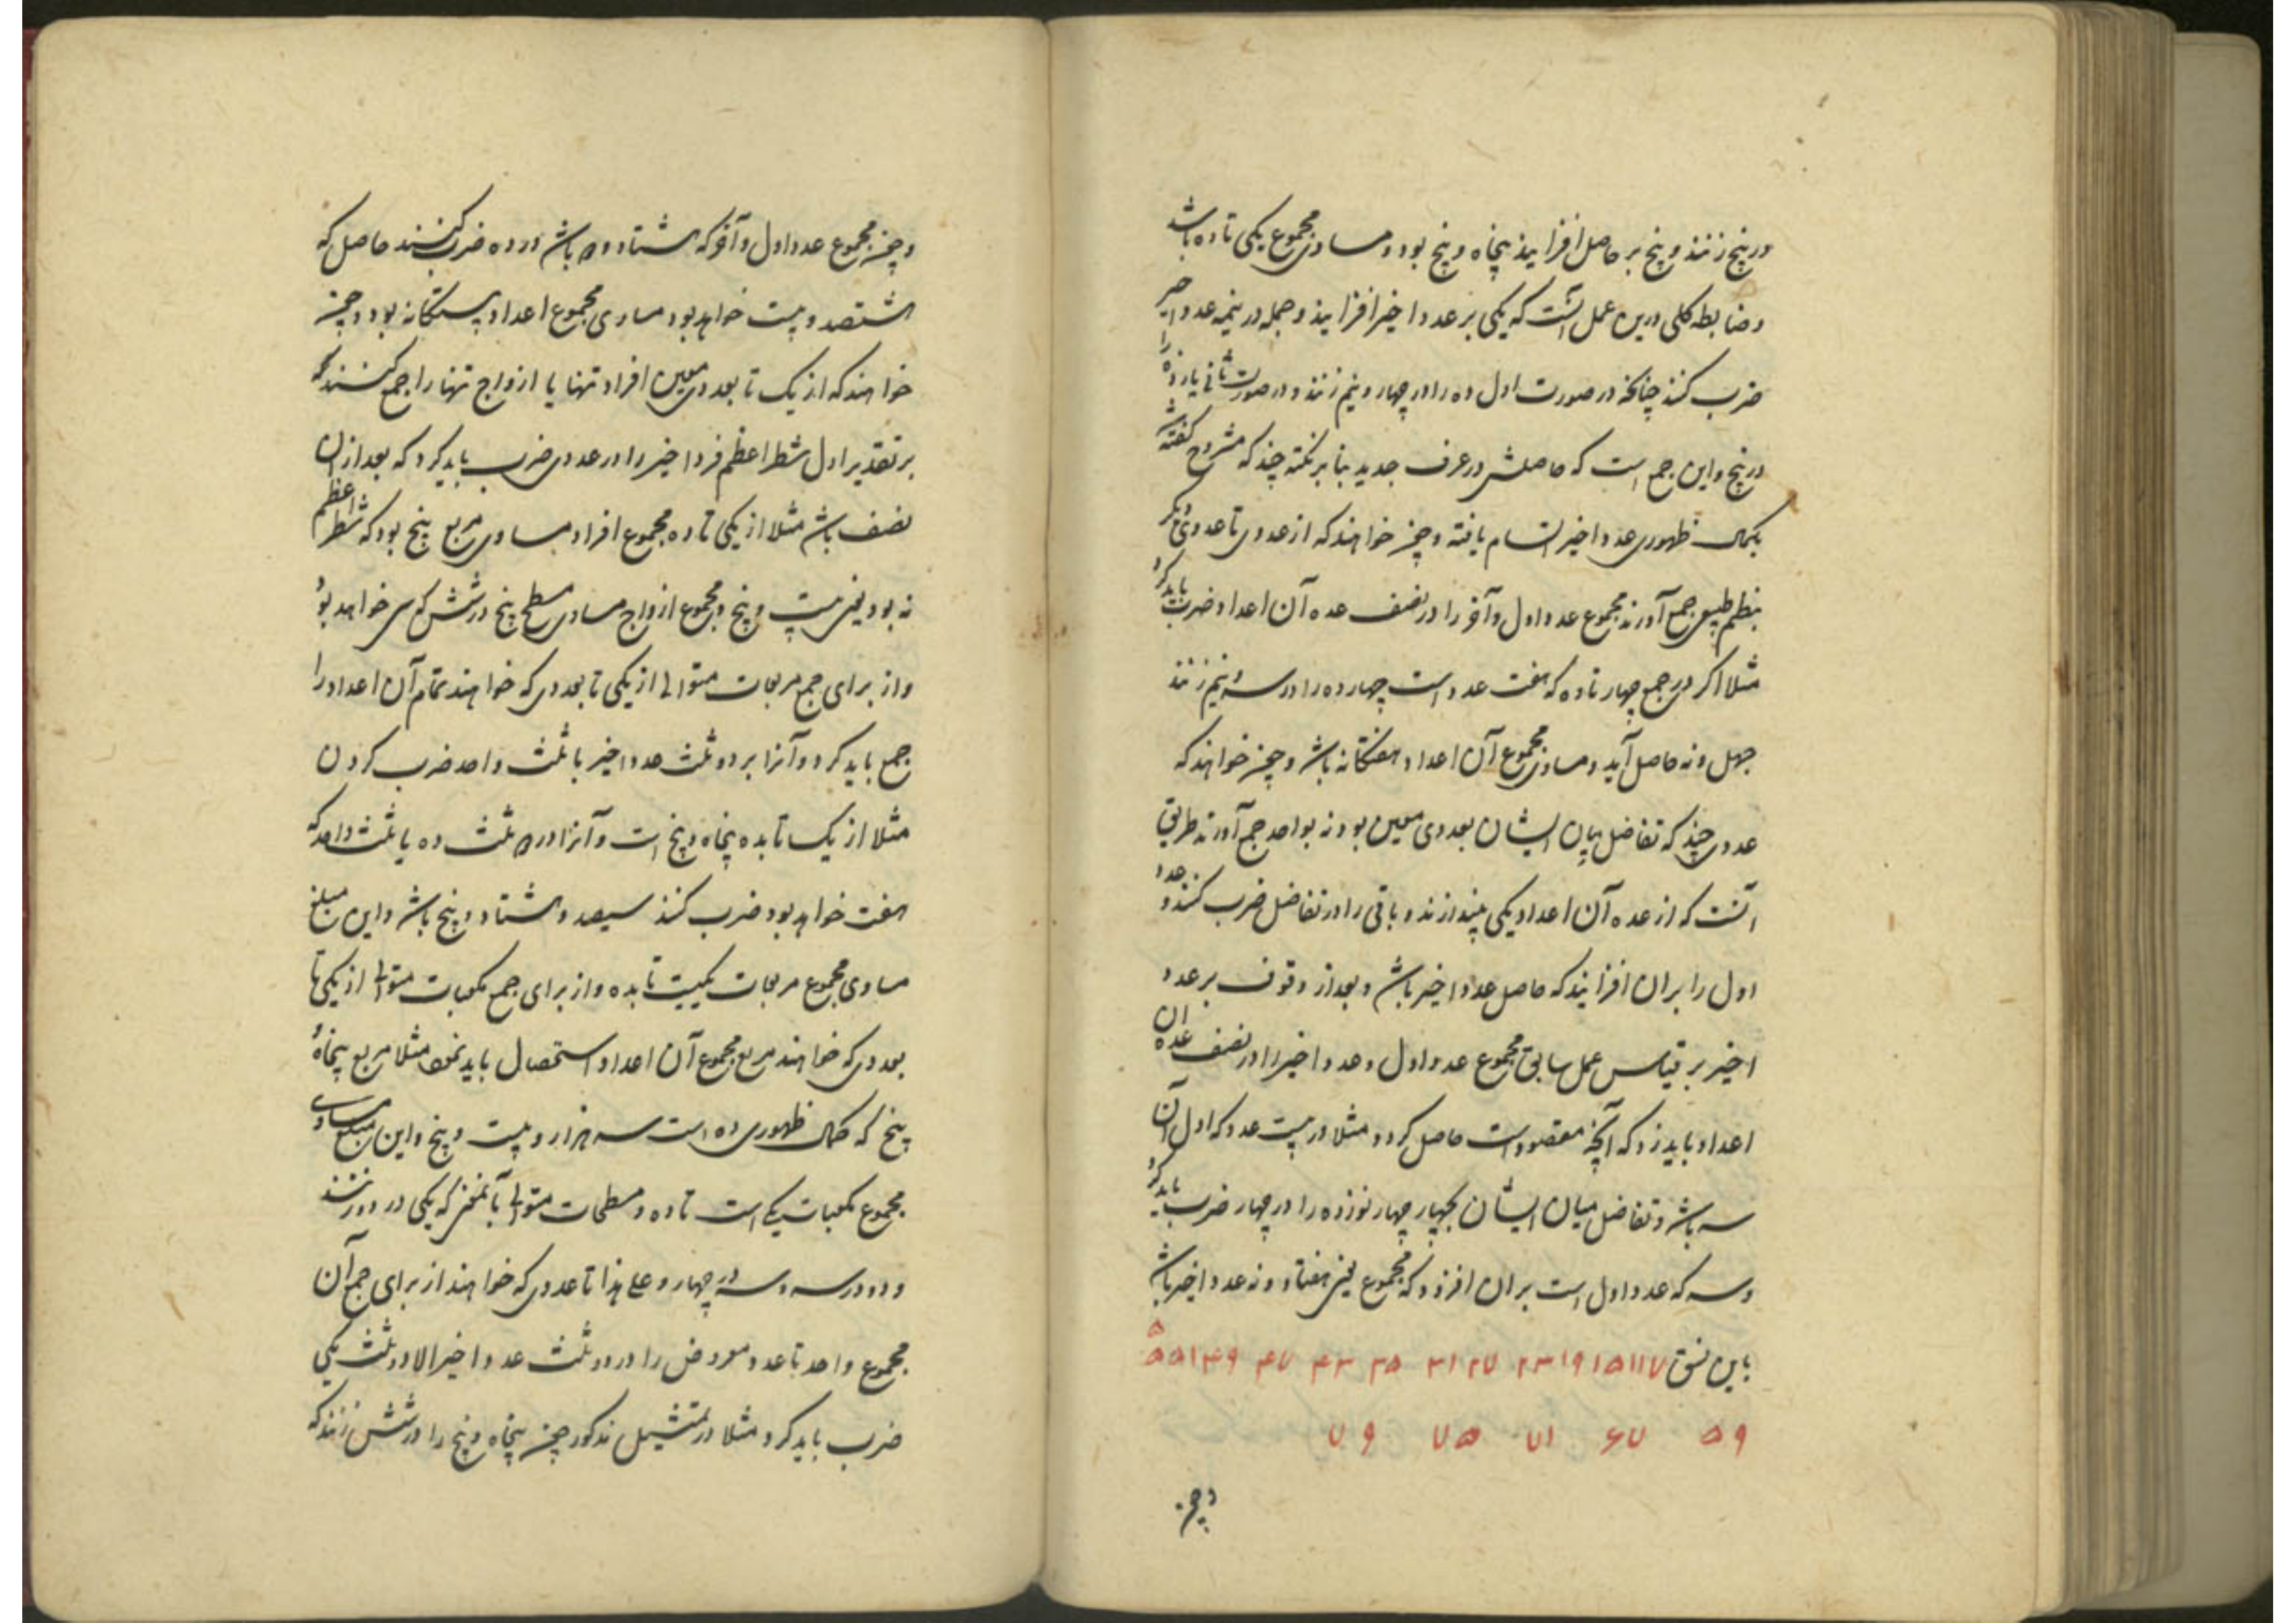 در پنج زنند و پنج بر حاصل افزایند پنجاه و پنج بود و مساوی مجموع یکی تا ده باشد
و ضابطه کلی درین عمل آنست که یکی بر عدد اخیر افزایند و جمله در نیمه عدد اخیر
ضرب کنند چنانکه در صورت اول ده را در چهار و نیم زنند و در صورت ثانی یازده را
در پنج و این جمع است که حاصلش در عرف جدید بنا بر نکته چند که مشروح گفته شد
بکمال ظهوری عدد اخیر اتسام یافته و چون خواهند که از عددی تا عددی دیگر
بنظم طبیعی جمع آورند مجموع عدد اول و آخر را در نصف عده آن اعداد ضرب باید کرد
مثلا اگر در جمع چهار تا ده که هفت عدد است چهارده را در سه و نیم زنند
چهل و نه حاصل آید و مساوی مجموع آن اعداد هفتگانه باشد و چون خواهند که
عددی چند که تفاضل میان ایشان بعددی معین بود نه بواحد جمع آورند طریق
آنست که از عده آن اعداد یکی بیندازند و باقی را در تفاضل ضرب کنند و عدد
اول را بران افزایند که حاصل عدد اخیر باشد و بعد از وقوف بر عدد
اخیر بر قیاس عمل سابق مجموع عدد اول و عدد اخیر را در نصف عده ان
اعداد باید زد که آنچه مقصود است حاصل گردد مثلا در بیست عدد که اول آن
سه باشد و تفاضل میان ایشان بچهار چهار نوزده را در چهار ضرب باید کرد
و سه که عدد اول است بران افزود که مجموع یعنی هفتاد و نه عدد اخیر باشد
باین نسق ۷ ۱۱ ۱۵ ۱۹ ۲۳ ۲۷ ۳۱ ۳۵ ۴۳ ۴۷ ۴۹ ۵۱ ۵۵
۵۹ ۶۷ ۷۱ ۷۵ ۷۹
و چون
و چون مجموع عدد اول و آخر که هشتاد و دو باشد در ده ضرب کنند حاصل که
هشتصد و بیست خواهد بود مساوی مجموع اعداد بیستگانه بود و چون
خواهند که از یک تا بعددی معین افراد تنها یا ازواج تنها را جمع کنند
بر تقدیر اول شطر اعظم فرد اخیر را در عددی ضرب باید کرد که بعد از ان
نصف باشد مثلا از یکی تا ده مجموع افراد مساوی مربع پنج بود که شطر اعظم
نه بود یعنی بیست و پنج و مجموع ازواج مساوی مسطح پنج در شش که سی خواهد بود
و از برای جمع مربعات متوالی از یکی تا بعددی که خواهند تمام آن اعداد را
جمع باید کرد و آنرا بر دو ثلث عدد اخیر با ثلث واحد ضرب کردن
مثلا از یک تا بده پنجاه و پنج است و آنرا در دو ثلث ده با ثلث واحد که
هفت خواهد بود ضرب کنند سیصد و هشتاد و پنج باشد و این مبلغ
مساوی مجموع مربعات یکیست تا بده و از برای جمع مکعبات متوالی از یکی تا
بعددی که خواهند مربع مجموع آن اعداد استحصال باید نمود مثلا مربع پنجاه و
پنج که کمال ظهوری ده است سه هزار و بیست و پنج و این مبلغ مساوی
مجموع مکعبات یکی است تا ده و مسطحات متوالی بآنمعنی که یکی در دو زنند
و دو در سه و سه در چهار و علی هذا تا عددی که خواهند از برای جمع آن
مجموع واحد تا عدد مفروض را در دو ثلث عدد اخیر الا دو ثلث یکی
ضرب باید کرد مثلا در تمثیل مذکور چون پنجاه و پنج را در شش زنند که